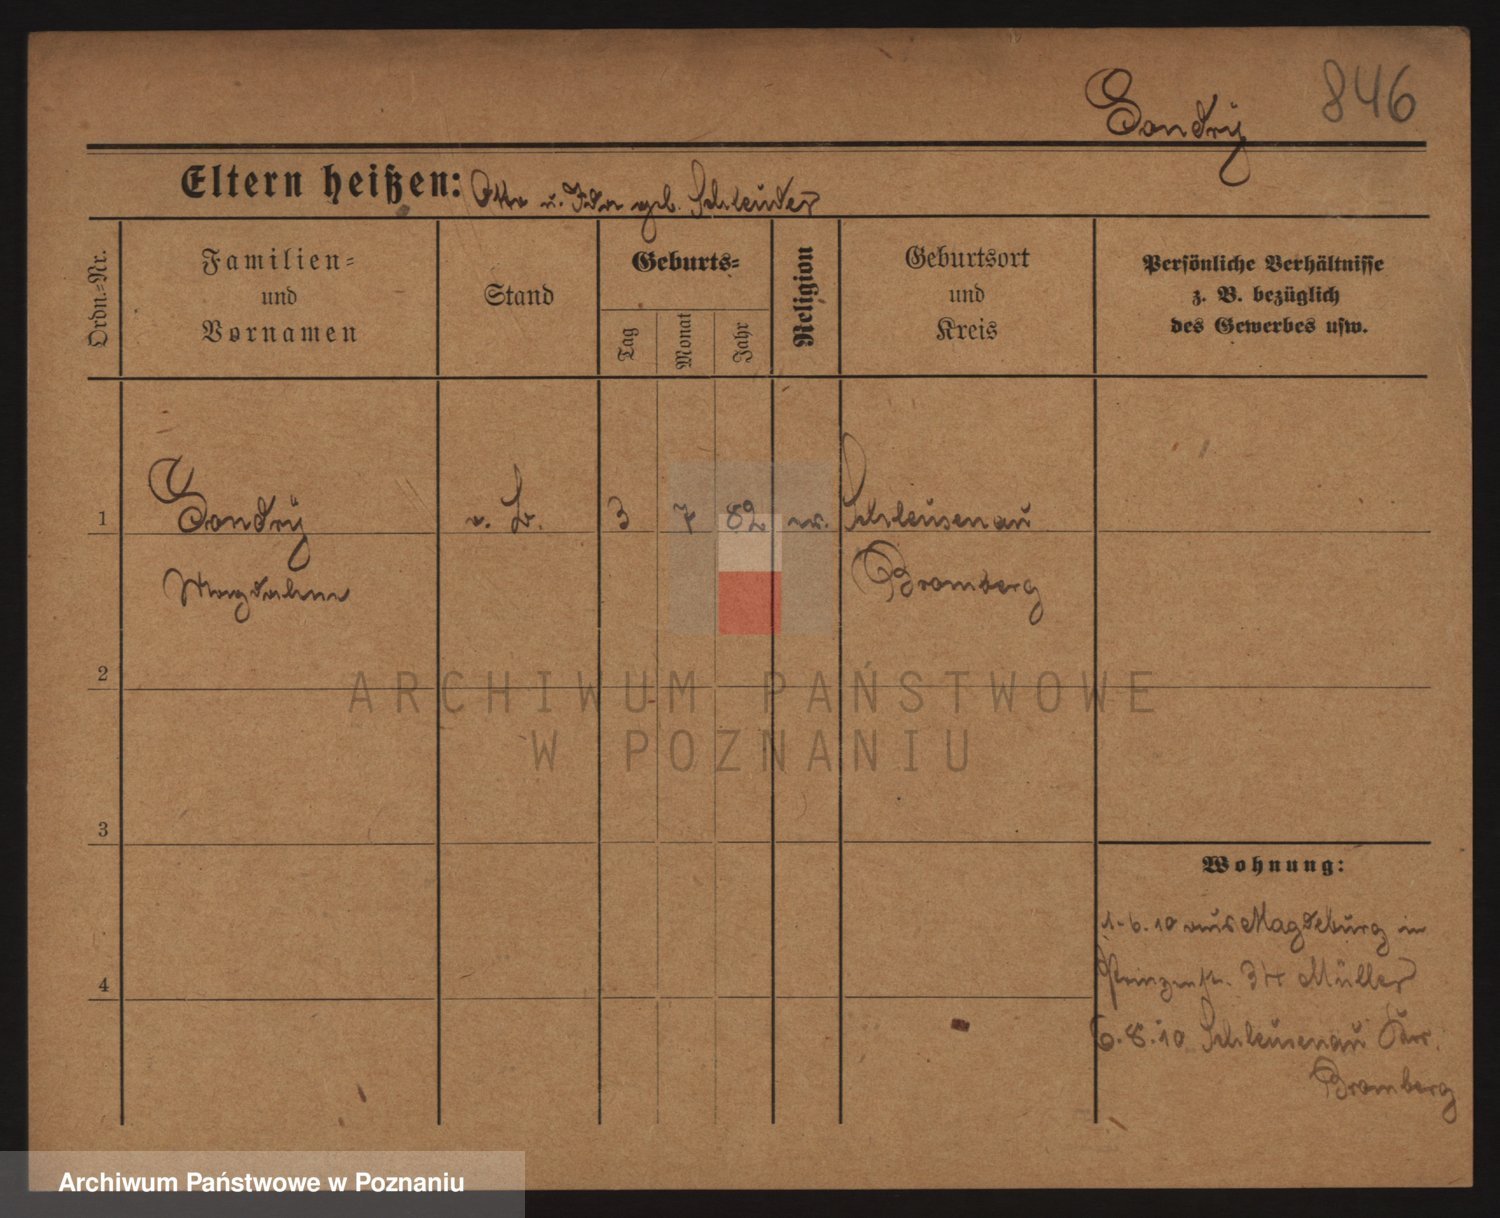 846
Gondrÿ
Eltern heißen: Otto u. Ida geb. Schleuder
Ordn.-Nr.
Familien-
und
Vornamen
Stand
Geburts-
Tag
Monat
Jahr
Religion
Geburtsort
und
Kreis
Persönliche Verhältnisse
z. B. bezüglich
des Gewerbes usw.
1 Gondrÿ 3 7 82 ev. Schleusenau
Magdalene Bromberg
2
ARCHIWUM PAŃSTWOWE
W POZNANIU
3
Wohnung:
1.6.10 aus Magdeburg in
Prinzenstr. Müller
4
6.8.10 Schleusenau
Bromberg
Archiwum Państwowe w Poznaniu